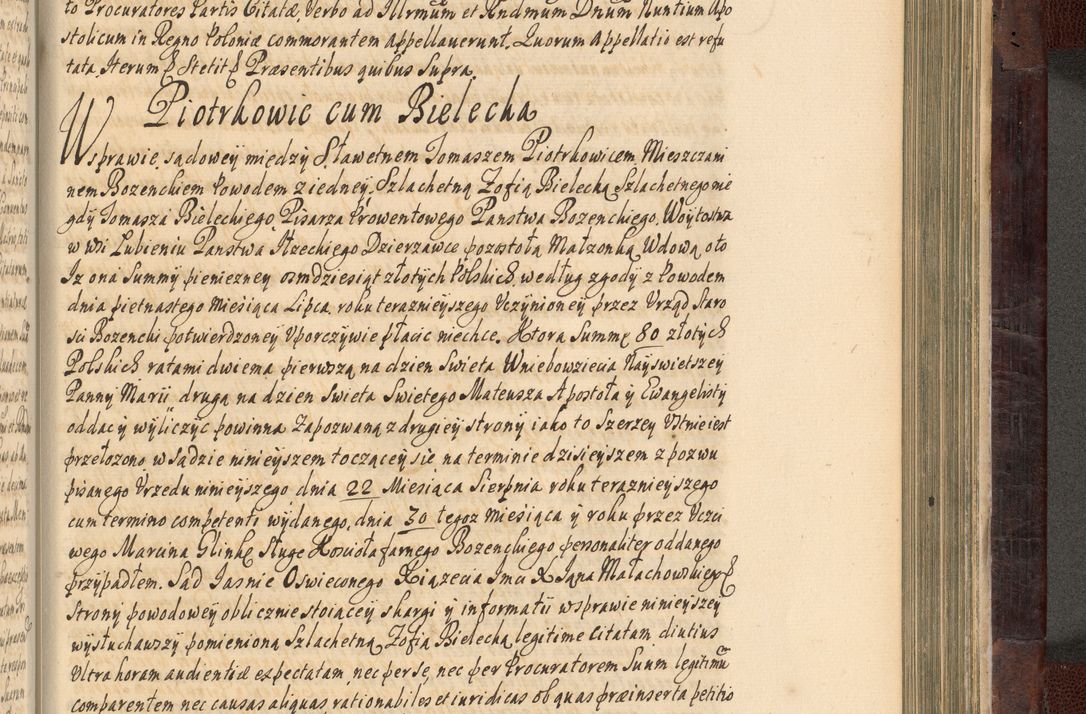 to Procuratores Partis Citatæ, Verbo ad Illrmum et Rndmum Dnum Nuntium Apo
stolicum in Regno Poloniæ commorantem Appellaverunt, Quorum Appellatio est refu
tata. Iterum & Stetit & Præsentibus quibus Supra.
Piotrkowic cum Bielecka
W sprawie sądowey między Sławetnem Tomaszem Piotrkowicem Mieszczani
nem Bozenckiem Powodem z iedney, Szlachetną Zofią Bielecką Szlachetnego nie
gdy Tomasza Bieleckiego Pisarza Prowentowego Panstwa Bozenckiego, Woytostwa
w Wsi Lubieniu Panstwa Itzeckiego Dzierzawce pozostołą Małzonką Wdową oto
Iz ona Summy pienięzney osmdziesiąt złotych Polskich, według zgody z Powodem
dnia pietnastego Miesiąca Lipca, roku teraznieyszego Uczynioney przez Urząd Staro
sci Bozencki potwierdzoney Uporczywie płacic niechce. Ktora Summę 80 złotych
Polskich ratami dwiema pierwszą na dzien Swieta Wniebowziecia Nayswietszey
Panny Marii drugą na dzien Swieta Swietego Mateusza Apostoła y Ewangelisty
oddac y wyliczyc powinna Zapozwaną z drugiey strony iako to Szerzey Ustnie iest
przełozono w Sądzie ninieyszem toczącey się na terminie dzisieyszem z pozwu
pisanego Urzedu ninieyszego dnia 22 Miesiąca Sierpnia roku teraznieyszego
cum termino competenti wydanego, dnia 30 tegoz Miesiąca y roku przez Uczci
wego Marcina Glinkę Sługe Koscioła farnego Bozenckiego personaliter oddanego
przypadłem. Sąd Iasnie Oswieconego Xiązecia Imci X Iana Małachowskiego &
Strony powodowey oblicznie stoiącey skargi y informatii w sprawie ninieyszey
wysłuchawszy pomienioną Szlachetną Zofią Bielecką legitime Citatam diutius
Ultra horam audientiæ expectatam, nec per se, nec per Procuratorem Suum legitimū
comparentem nec causas aliquas rationabiles et iuridicas ob quas præinserta petitio